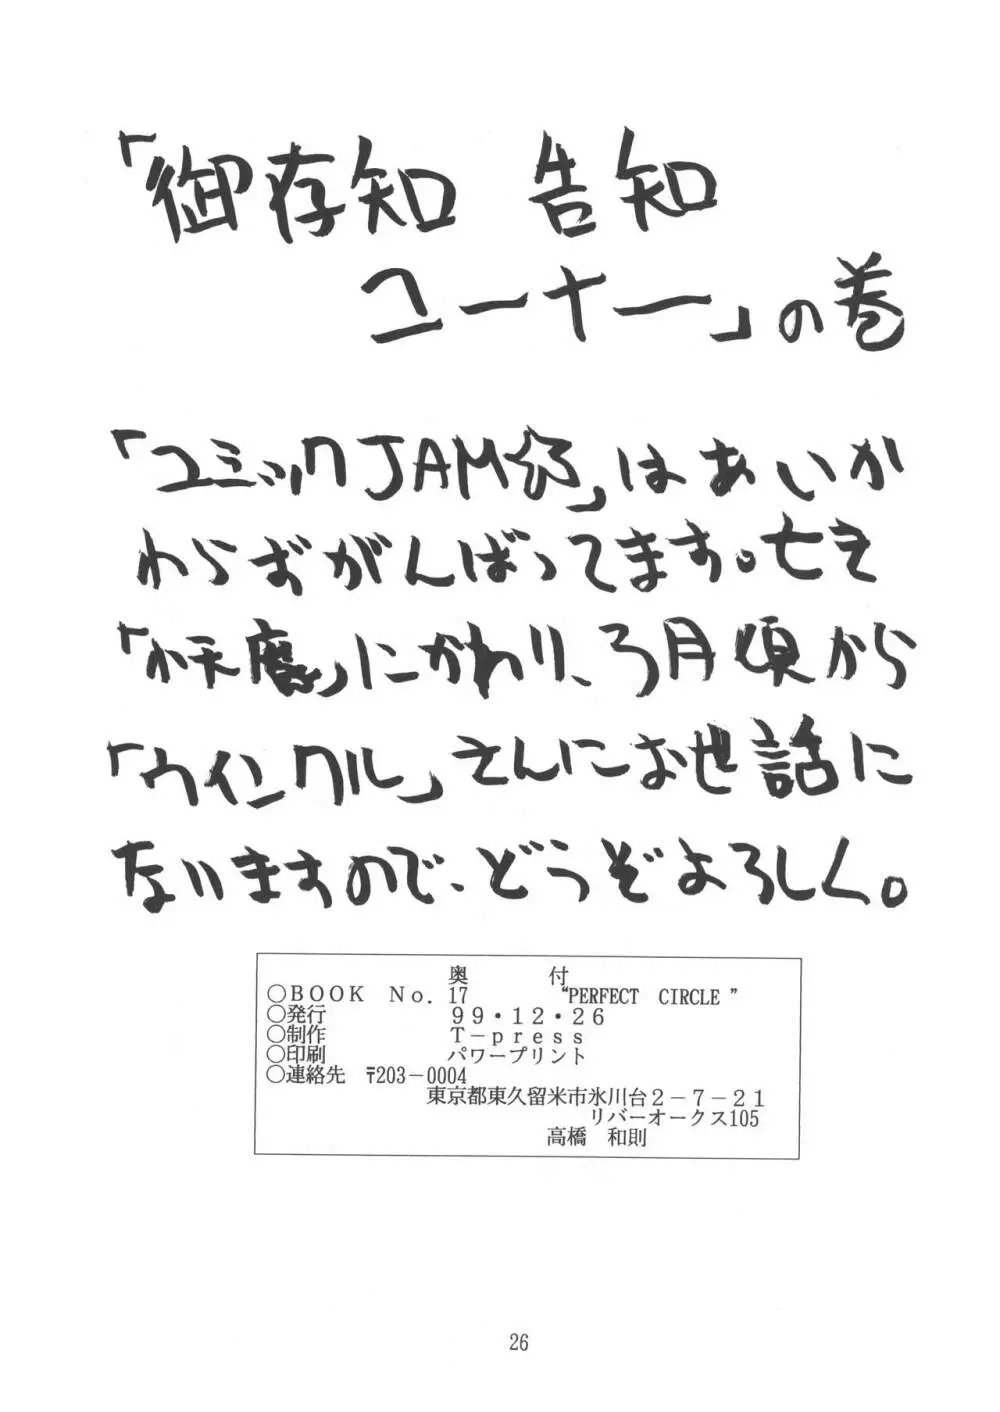 「御存知 告知
コーナー」の巻
「コミックJAM
はあいか
わらずがんばってます。亡き
「小天魔」にかわり、3月頃から
「ウインクル」さんにお世話に
なりますので、どうぞよろしく。
奥　付
○BOOK No. 17 “PERFECT CIRCLE”
○発行 99・12・26
○制作 T-press
○印刷 パワープリント
○連絡先 〒203-0004
東京都東久留米市氷川台2-7-21
リバーオークス105
高橋 和則
26